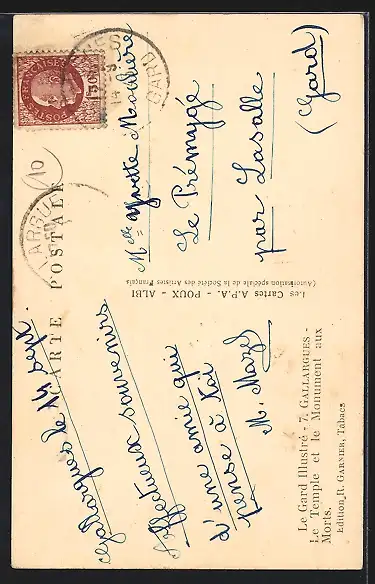 CARTE POSTALE
Gallargues le 14 sept.
Affectueux souvenirs
d'une amie qui
pense à toi
M. Mazel
Le Gard Illustré - 7. GALLARGUES -
Le Temple et le Monument aux
Morts.
Edition R. GARNIER, Tabacs
Les Cartes A.P.A. - POUX - ALBI
(Autorisation spéciale de la Société des Artistes Français)
POSTES FRANÇAISES
1F50
GARD
10
Melle Yvette
Le Prémygé
par Lasalle
(Gard)